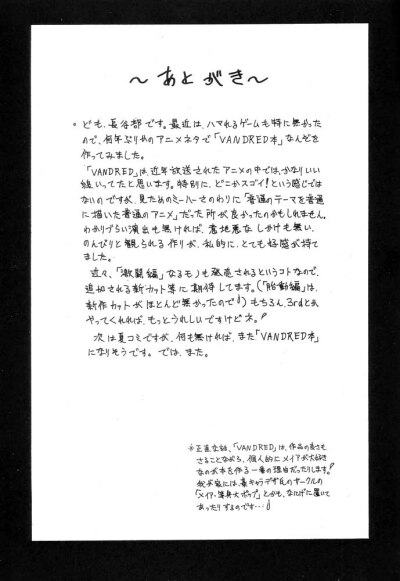 〜あとがき〜
。ども、長谷部です。最近は、ハマれるゲームも特に無かった
ので、何年ぶりかのアニメネタで「VANDRED本」なんぞを
作ってみました。
「VANDRED」は、近年放送されたアニメの中では、かなりいい
線いってたと思います。特別に、どこかスゴイ!という感じでは
ないのですが、見ためのミーハーさのわりに「普通のテーマを普通
に描いた普通のアニメ」だった所が良かったのかもしれません。
わかりづらい演出も無ければ、意地悪な しかけも無い、
のんびりと観られる作りが、私的に、とても好感が持て
ました。
近々、「激闘編」なるモノも発売されるというコトなので、
追加される新カット等に期待してます。(「胎動編」は、
新作カットがほとんど無かったので)もちろん、3rdとか
やってくれれば、もっとうれしいですけどネ。
次は夏コミですが、何も無ければ、また「VANDRED本」
になりそうです。では、また。
※正直な話、「VANDRED」は、作品の良さも
さることながら、個人的にメイアが大好き
なのが本を作る一番の理由だったりします。
我が家には、某キャラデザ氏のサークルの
「メイア・等身大ポップ」とかも、なにげに置いて
あったりするのです…